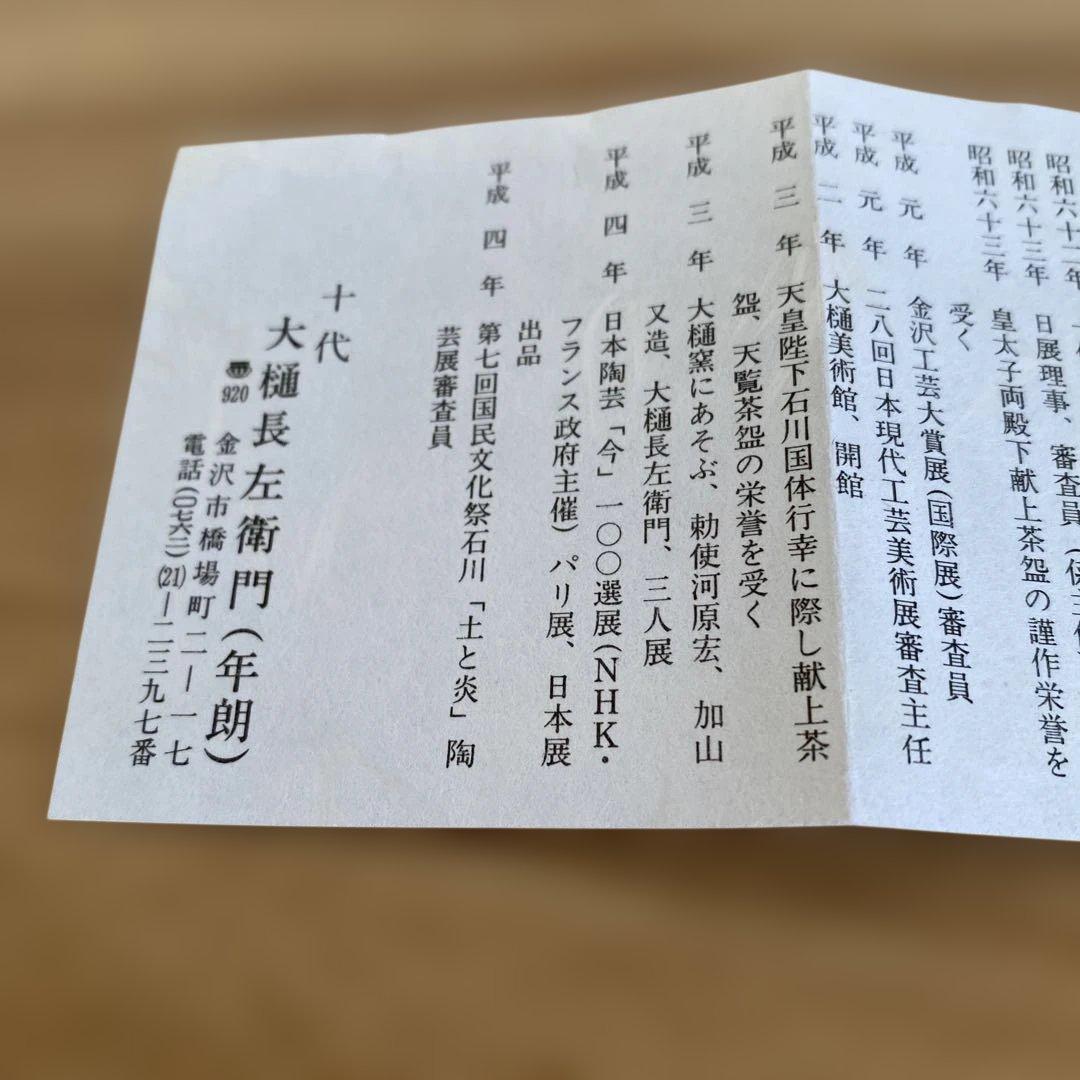 昭和六十二年
日展理事、審査員
昭和六十三年
皇太子両殿下献上茶盌の謹作栄誉を
昭和六十三年
受く
平成 元 年 金沢工芸大賞展(国際展)審査員
平成 元 年 二八回日本現代工芸美術展審査主任
平成 二 年 大樋美術館、開館
平成 三 年 天皇陛下石川国体行幸に際し献上茶
盌、天覧茶盌の栄誉を受く
平成 三 年 大樋窯にあそぶ、勅使河原宏、加山
又造、大樋長左衛門、三人展
平成 四 年 日本陶芸「今」一〇〇選展(NHK・
フランス政府主催)パリ展、日本展
出品
平成 四 年 第七回国民文化祭石川「土と炎」陶
芸展審査員
十代
大樋長左衛門(年朗)
〠920 金沢市橋場町二―一七
電話(〇七六二)(21)―二三九七番